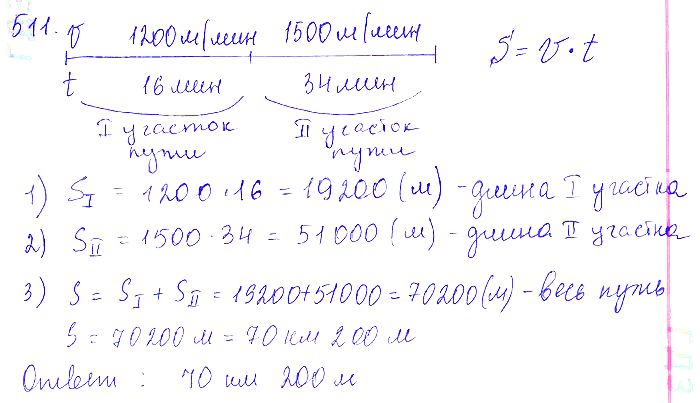 511. v 1200 м/мин 1500 м/мин
S = v · t
t 16 мин 34 мин
I участок пути
II участок пути
1) S_I = 1200 · 16 = 19200 (м) - длина I участка
2) S_II = 1500 · 34 = 51000 (м) - длина II участка
3) S = S_I + S_II = 19200 + 51000 = 70200 (м) - весь путь
S = 70200 м = 70 км 200 м
Ответ : 70 км 200 м